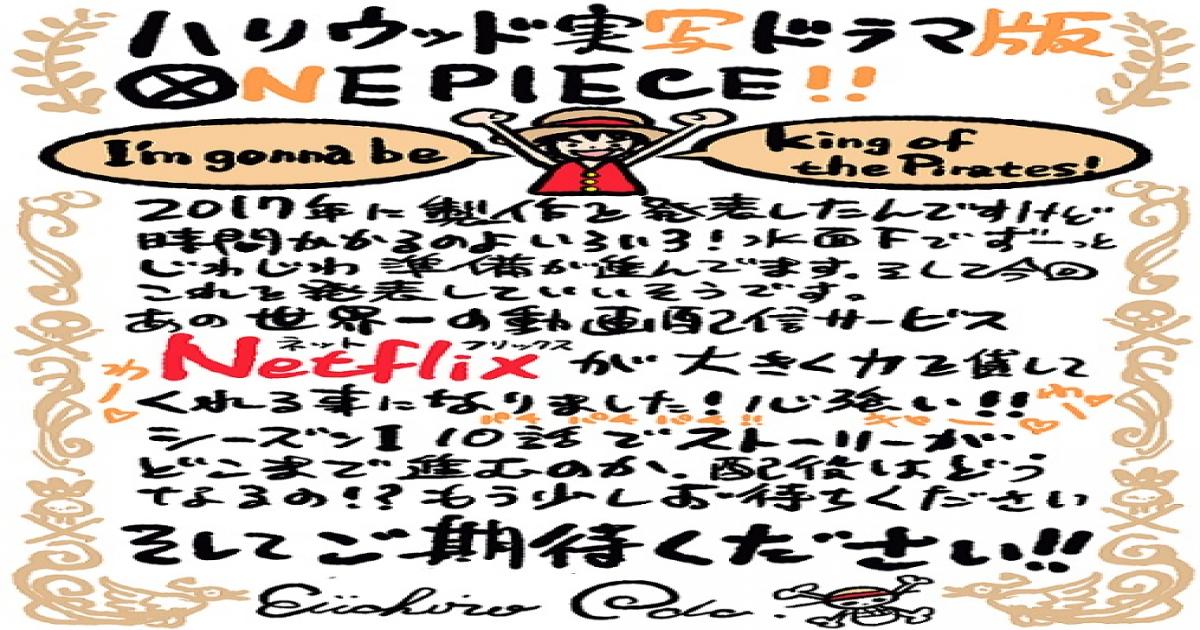 ハリウッド実写ドラマ版
ONE PIECE!!
I'm gonna be
king of
the Pirates!
2017年に製作を発表したんですけど
時間かかるのよいろいろ!水面下でずーっと
じわじわ準備が進んでます。そして今回
これを発表していいそうです。
あの世界一の動画配信サービス
ネットフリックス
Netflixが大きく力を貸して
わーい♡
くれる事になりました!心強い!!
わーい♡
パチパチパチ!! きゃー♡
シーズン1 10話でストーリーが
どこまで進むのか、配役はどう
なるの!?もう少しお待ちください
そしてご期待ください!!
Eiichiro Oda.